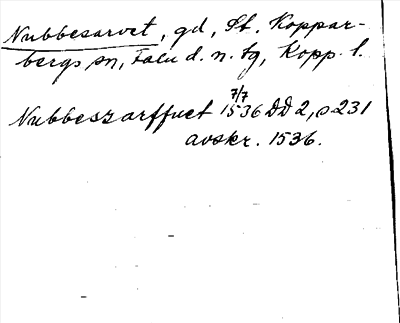 Nubbesarvet, gd, St. Koppar-
bergs sn, Falu d. n. tg, Kopp. l.
7/7
Nubbeszarffuet 1536 DD 2, s 231
avskr. 1536.